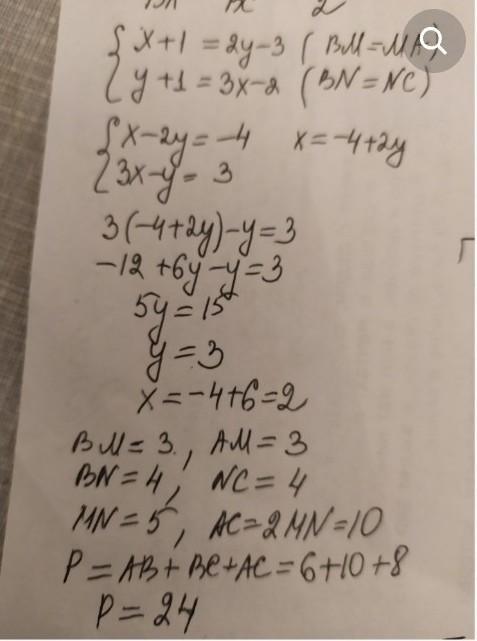 { x+1 = 2y-3 ( BM=MA)
{ y+1 = 3x-2 (BN=NC)
{ x-2y=-4 x=-4+2y
{ 3x-y= 3
3(-4+2y)-y=3
-12+6y-y=3
5y=15
y=3
x=-4+6=2
BM=3, AM=3
BN=4, NC=4
MN=5, AC=2MN=10
P=AB+BC+AC=6+10+8
P=24